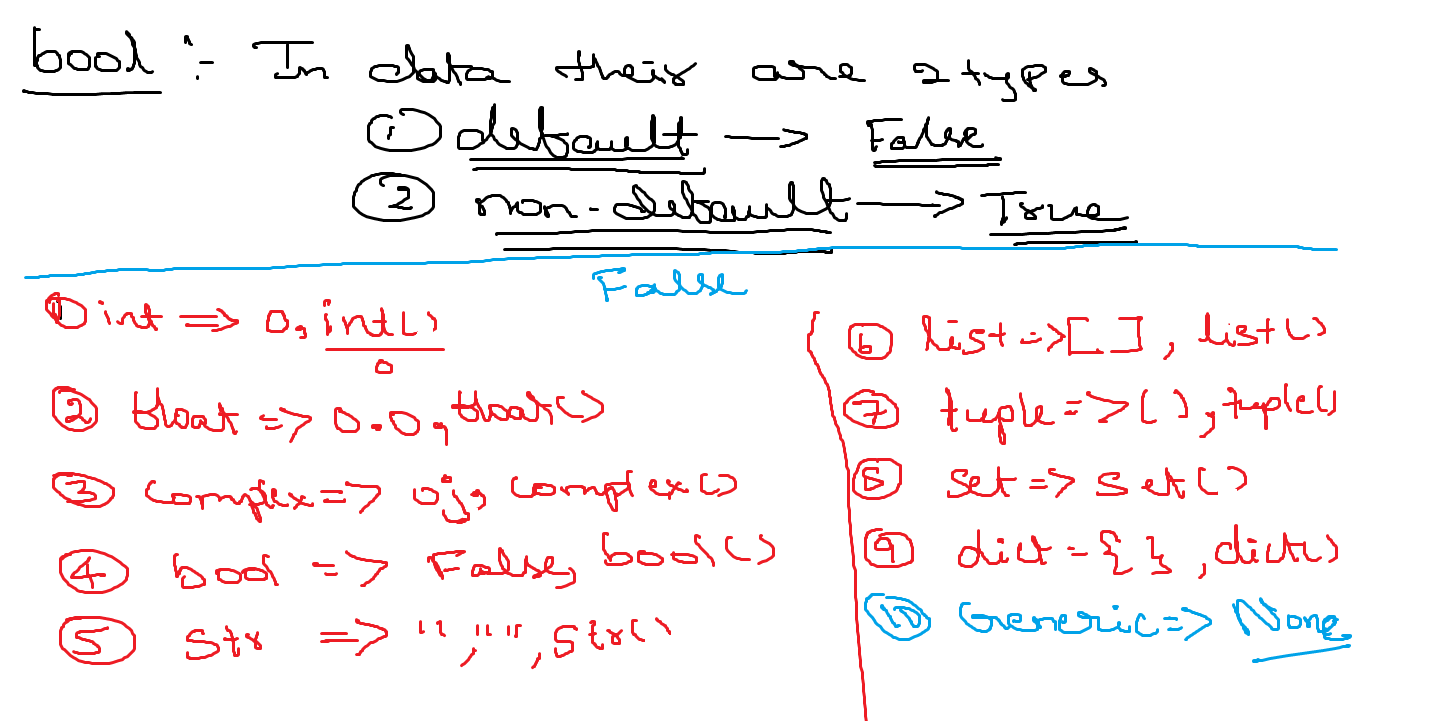 bool :- In data their are 2 types
① default → False
② non-default → True
False
① int => 0, int()
0
② float => 0.0, float()
③ complex => 0j, complex()
④ bool => False, bool()
⑤ str => '', "", str()
⑥ list => [ ], list()
⑦ tuple => ( ), tuple()
⑧ set => set()
⑨ dict = { }, dict()
⑩ Generic => None